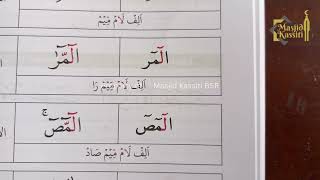 اَلِفْ لَامْ مِّيْمْ
الٓمّٓرٰ الٓمٓر
اَلِفْ لَامْ مِّيْمْ رَا
الٓمّٓصٓ ۚ الٓمٓصٓ
اَلِفْ لَامْ مِّيْمْ صَادْ
Masjid Kassiti BSR
Masjid
Kassiti